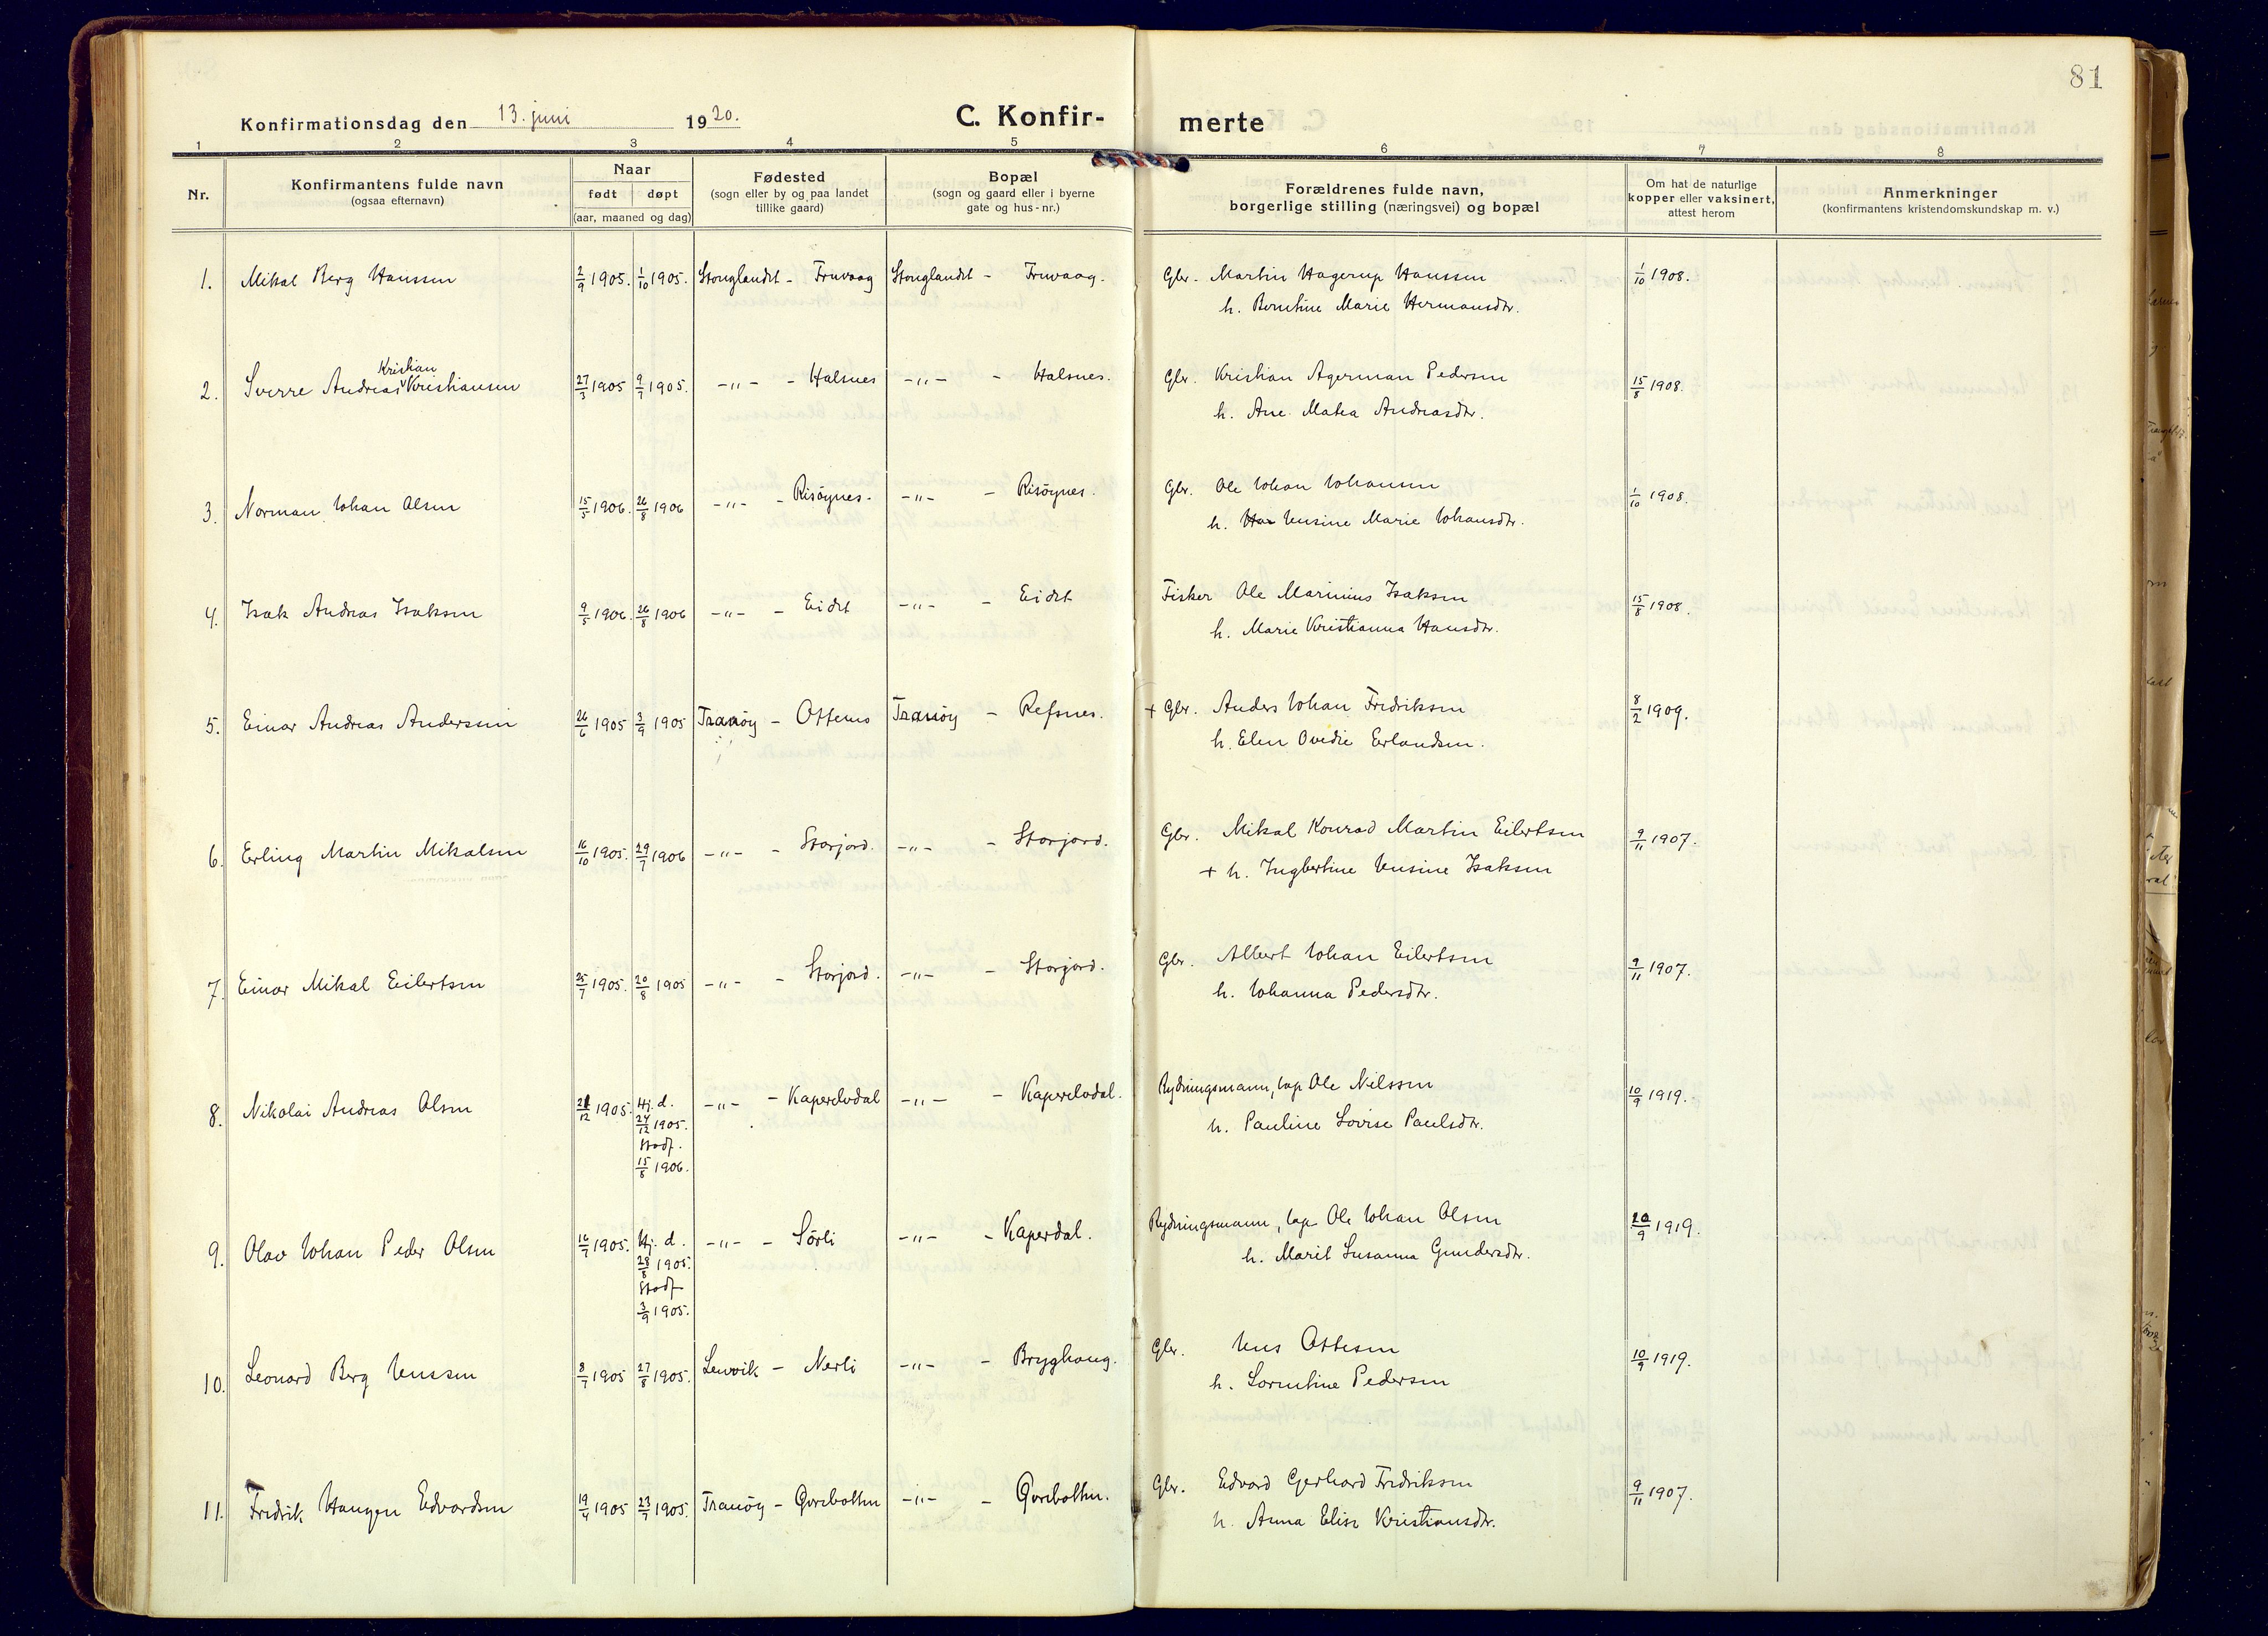 81
Konfirmationsdag den 13. juni 1920. C. Konfirmerte
1 2 3 4 5 6 7 8
Nr. Konfirmantens fulde navn (ogsaa efternavn) Naar født døpt (aar, maaned og dag) Fødested (sogn eller by og paa landet tillike gaard) Bopæl (sogn og gaard eller i byerne gate og hus-nr.) Forældrenes fulde navn, borgerlige stilling (næringsvei) og bopæl Om hat de naturlige kopper eller vaksinert, attest herom Anmerkninger (konfirmantens kristendomskundskap m. v.)
1. Mikal Berg Hanssen 2/9 1905. 1/10 1905. Stonglandet - Fruvaag Stonglandet - Fruvaag. Gbr. Martin Hagerup Hanssen 1/10 1908.
h. Berntine Marie Hermansdtr.
Kristian
2. Sverre Andreas Kristiansen 27/3 1905 9/7 1905. -"- - Halsnes -"- - Halsnes. Gbr. Kristian Agerman Pedersen 15/8 1908.
h. Ane Matea Andreasdtr.
3. Norman Johan Olsen 15/5 1906. 26/8 1906 -"- - Risøynes. -"- - Risøynes. Gbr. Ole Johan Johansen 1/10 1908.
h. Jensine Marie Johansdtr.
4. Isak Andreas Isaksen 9/5 1906. 26/8 1906 -"- - Eidet -"- - Eidet Fisker Ole Marinius Isaksen 15/8 1908.
h. Marie Kristianna Hansdtr.
5. Einar Andreas Andersen 26/6 1905 3/9 1905 Tranöy - Ottenes Tranöy - Refsnes. + Gbr. Anders Johan Fredriksen 8/2 1909.
h. Elen Ovedie Erlandsen.
6. Erling Martin Mikalsen 16/10 1905. 29/7 1906 -"- - Storjord. -"- - Storjord. Gbr. Mikal Konrad Martin Eilertsen 9/11 1907.
+ h. Ingbertine Jensine Isaksen
7. Einar Mikal Eilertsen 25/7 1905. 20/8 1905 -"- - Storjord. -"- - Storjord. Gbr. Albert Johan Eilertsen 9/11 1907.
h. Johanna Pedersdtr.
8. Nikolai Andreas Olsen 21/12 1905. Hj. d. -"- - Kaperelvdal -"- - Kaperelvdal. Rydningsmann, lap Ole Nilssen 10/9 1919.
24/12 1905. h. Pauline Lovise Paulsdtr.
stadf.
15/8 1906.
9. Olav Johan Peder Olsen 16/7 1905. Hj. d. -"- - Sörli -"- - Kaperdal. Rydningsmann, lap Ole Johan Olsen 20/9 1919.
28/8 1905. h. Marit Susanna Gundersdtr.
Stadf
3/9 1905.
10. Leonard Berg Jenssen 8/7 1905 27/8 1905. Lenvik - Nerli -"- - Bryghaug. Gbr. Jens Ottesen 10/9 1919.
h. Lorentine Pedersen
11. Fredrik Haugen Edvardsen 19/4 1905 23/7 1905. Tranöy - Gjorebotten -"- - Gjorebotten. Gbr. Edvard Gerhard Fredriksen 9/11 1907.
h. Anna Elise Kristiansdtr.